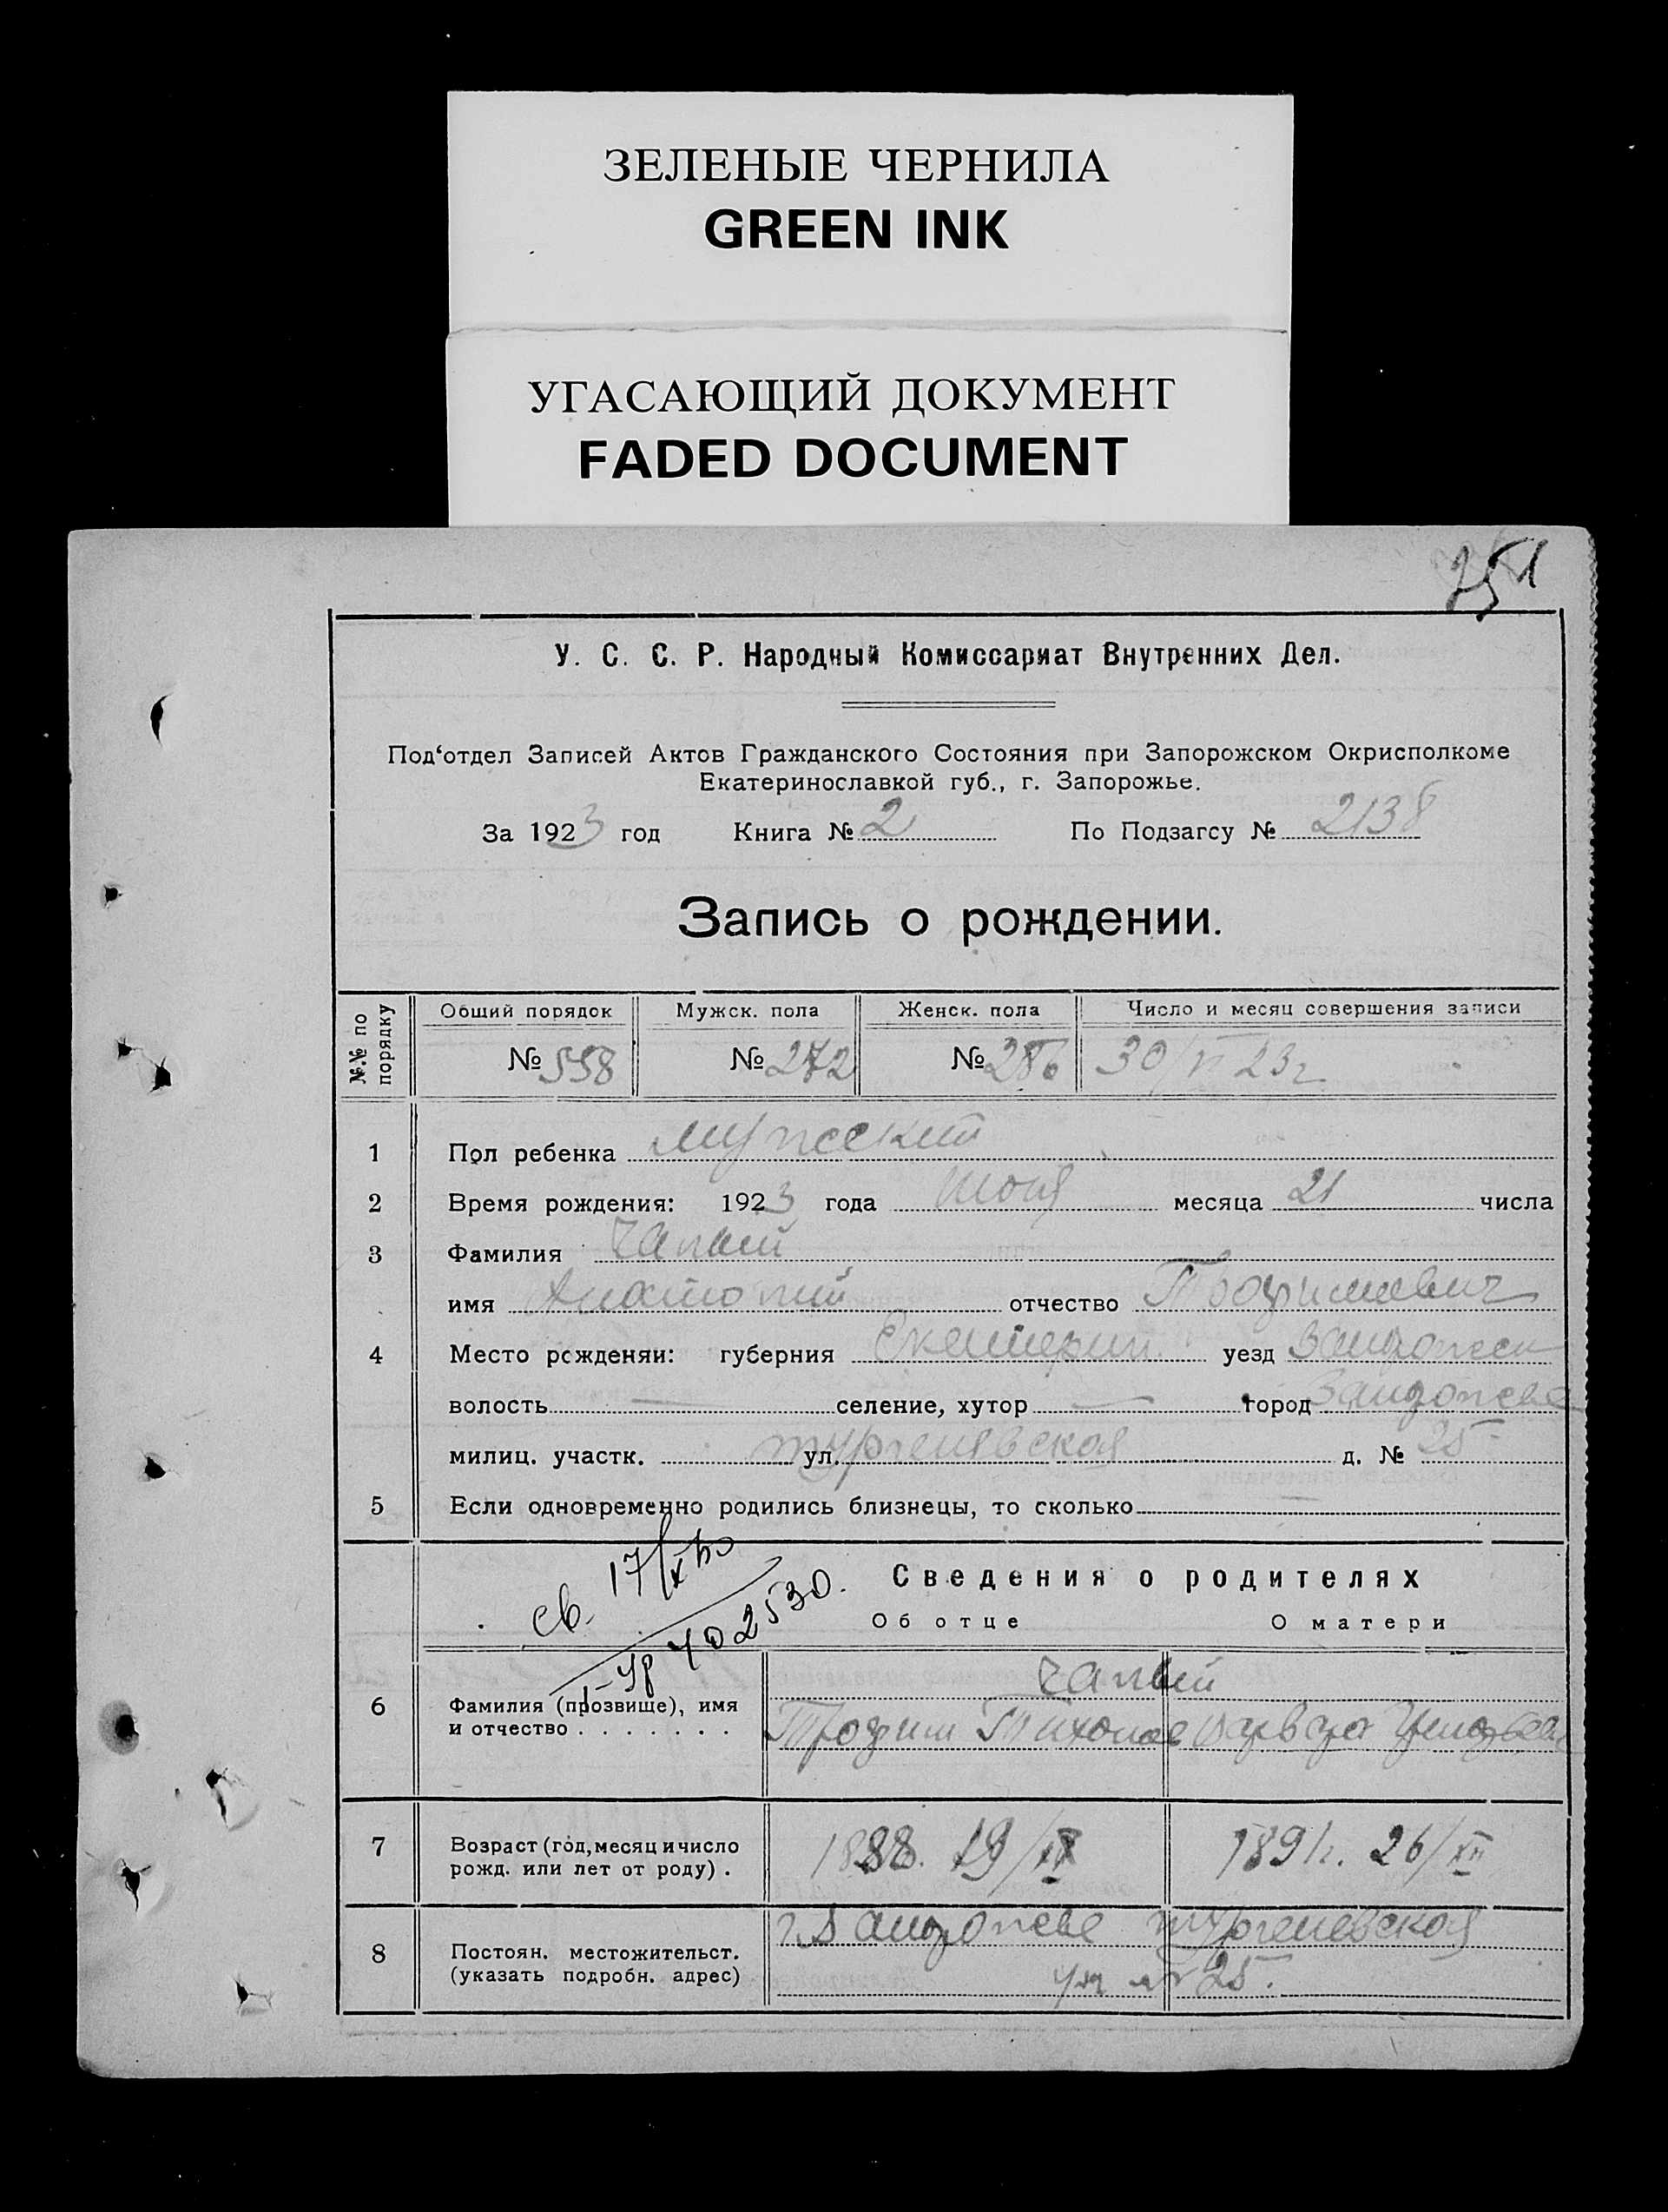 ЗЕЛЕНЫЕ ЧЕРНИЛА
GREEN INK
УГАСАЮЩИЙ ДОКУМЕНТ
FADED DOCUMENT
251
У. С. С. Р. Народный Комиссариат Внутренних Дел.
Под‘отдел Записей Актов Гражданского Состояния при Запорожском Окрисполкоме
Екатеринославкой губ., г. Запорожье.
За 1923 год Книга № 2 По Подзагсу № 2138
Запись о рождении.
№№ по порядку Общий порядок Мужск. пола Женск. пола Число и месяц совершения записи
№ 558 № 272 № 286 30/VI 23 г
1 Пол ребенка мужеский
2 Время рождения: 1923 года июня месяца 21 числа
3 Фамилия Чапый
имя Анатолий отчество Трофимович
4 Место рожденяи: губерния Екатерин. уезд Запорожск
волость — селение, хутор — город Запорожье
милиц. участк. ул. Тургеневская д. № 25
5 Если одновременно родились близнецы, то сколько
св. 17/X
402530.
Сведения о родителях
Об отце О матери
6 Фамилия (прозвище), имя
и отчество . . . . . . .
Чапый
Трофим Тихонов Варвара
7 Возраст (год, месяц и число
рожд. или лет от роду) .
1888. 19/IX 1891 г. 26/XII
8 Постоян. местожительст.
(указать подробн. адрес)
г. Запорожье Тургеневская
ул № 25.